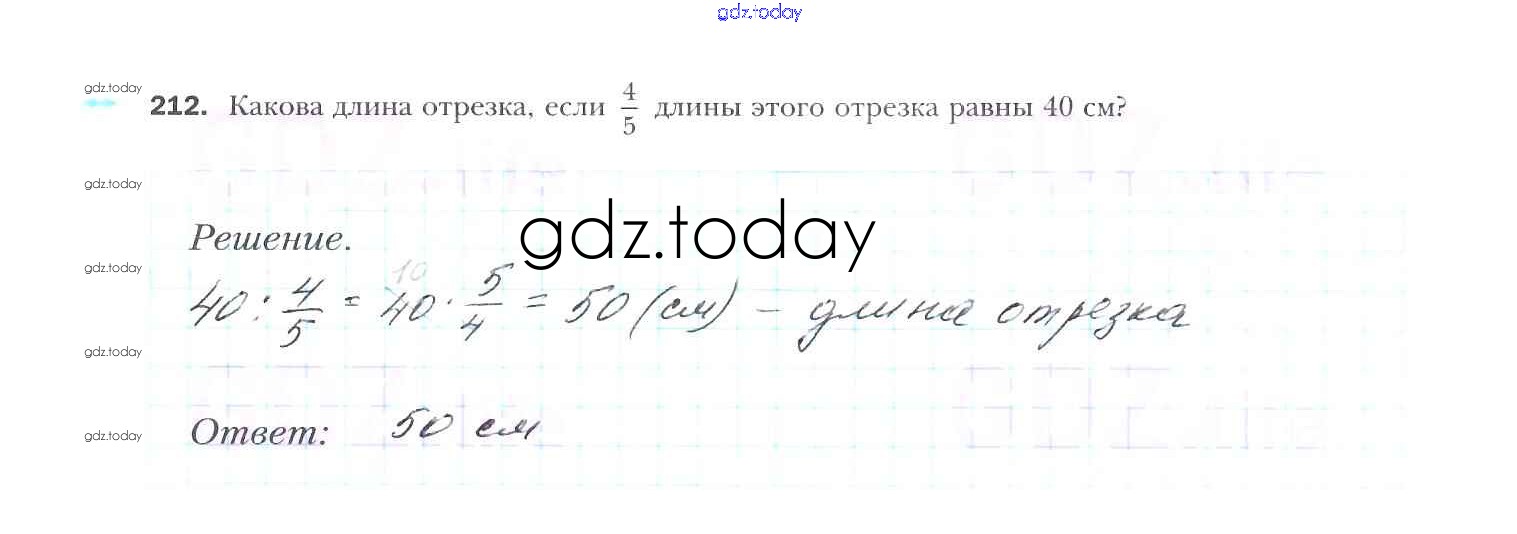 gdz.today
gdz.today
212. Какова длина отрезка, если 4/5 длины этого отрезка равны 40 см?
gdz.today
Решение.
gdz.today
gdz.today
40 : 4/5 = 40 10 · 5/4 = 50 (см) – длина отрезка
gdz.today
Ответ: 50 см
gdz.today